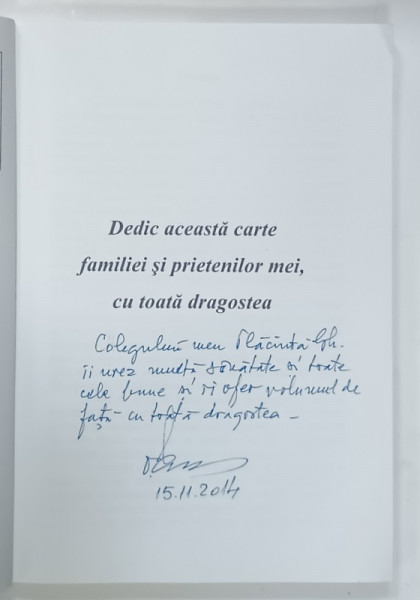 Dedic această carte
familiei şi prietenilor mei,
cu toată dragostea
Colegului meu Plăcintă Gh.
îi urez multă sănătate și toate
cele bune și îi ofer volumul de
față cu toată dragostea –
15.11.2014